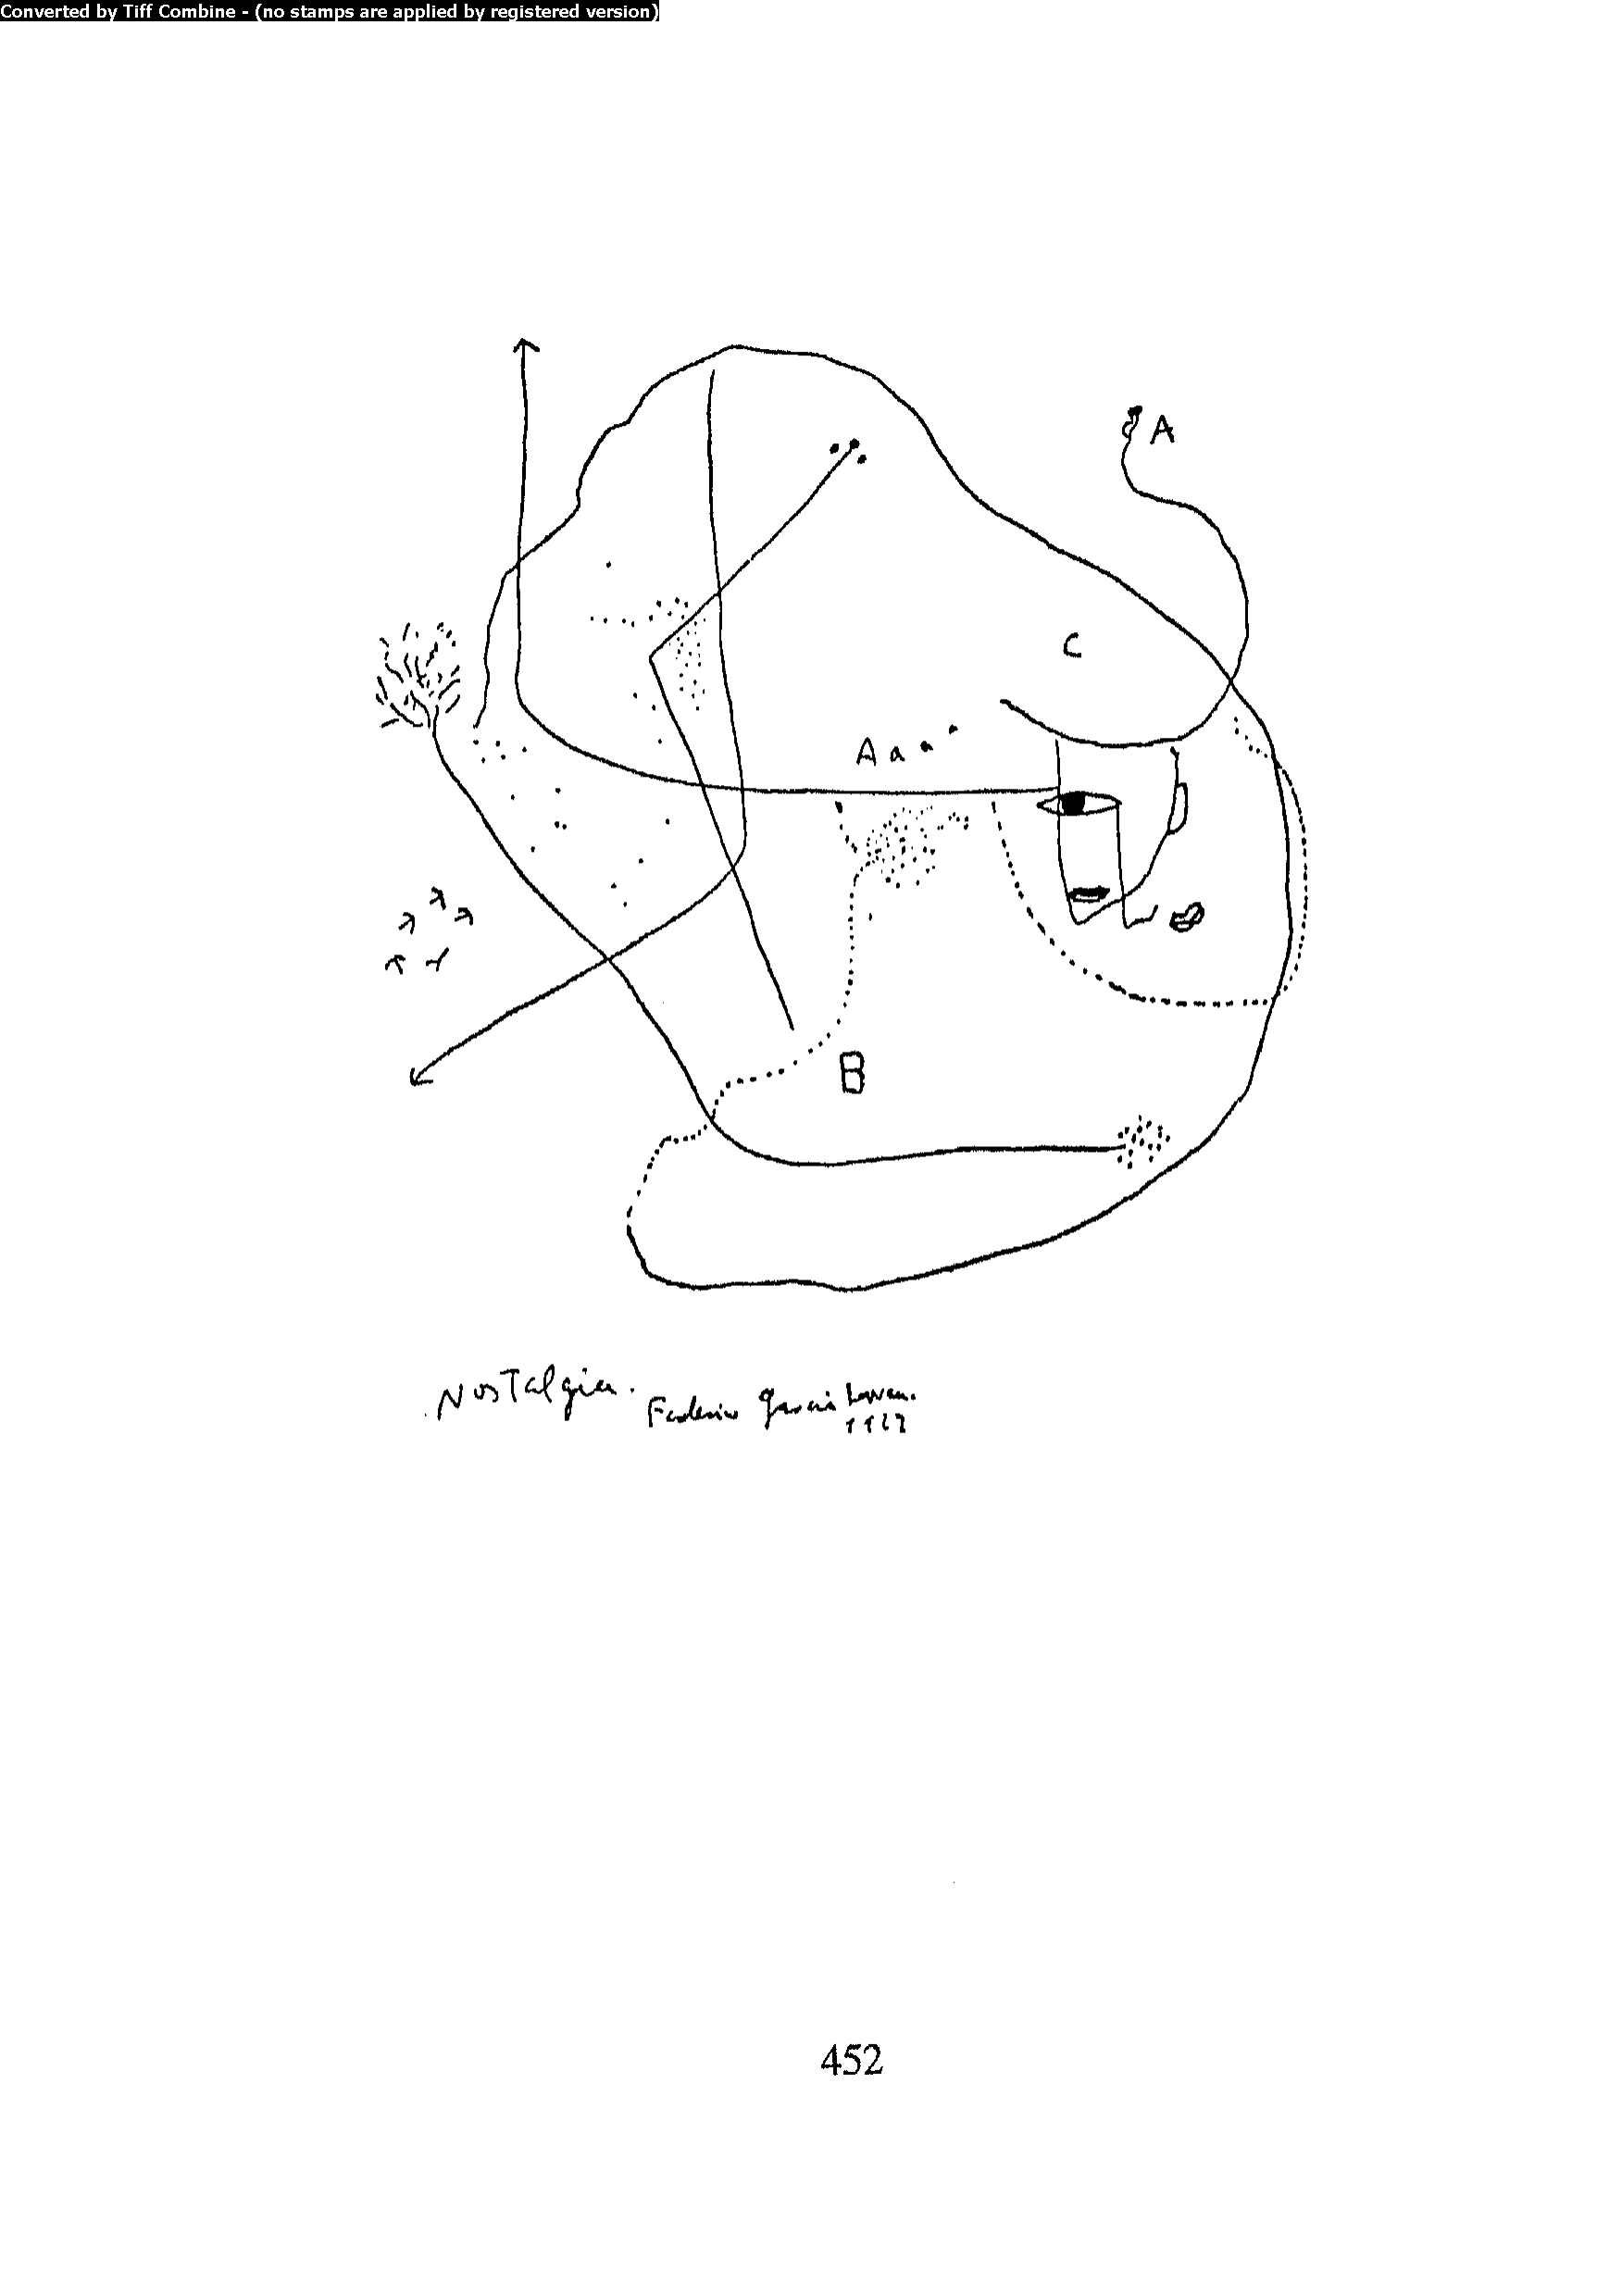 Converted by Tiff Combine - (no stamps are applied by registered version)
A
C
A a
B
Nostalgia. Federico García Lorca.
452